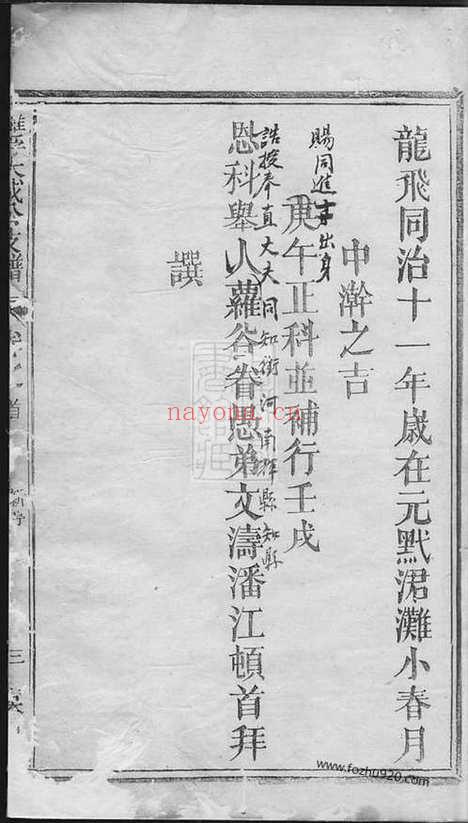 龍飛同治十一年歲在元默涒灘小春月
中澣之吉
賜同進士出身
庚午正科並補行壬戌
誥授奉直大夫同知銜河南輝縣知縣
恩科舉人蘿谷眷愚弟文濤潘江頓首拜
譔
支譜
首
三
nayona.cn
www.fozhu920.com